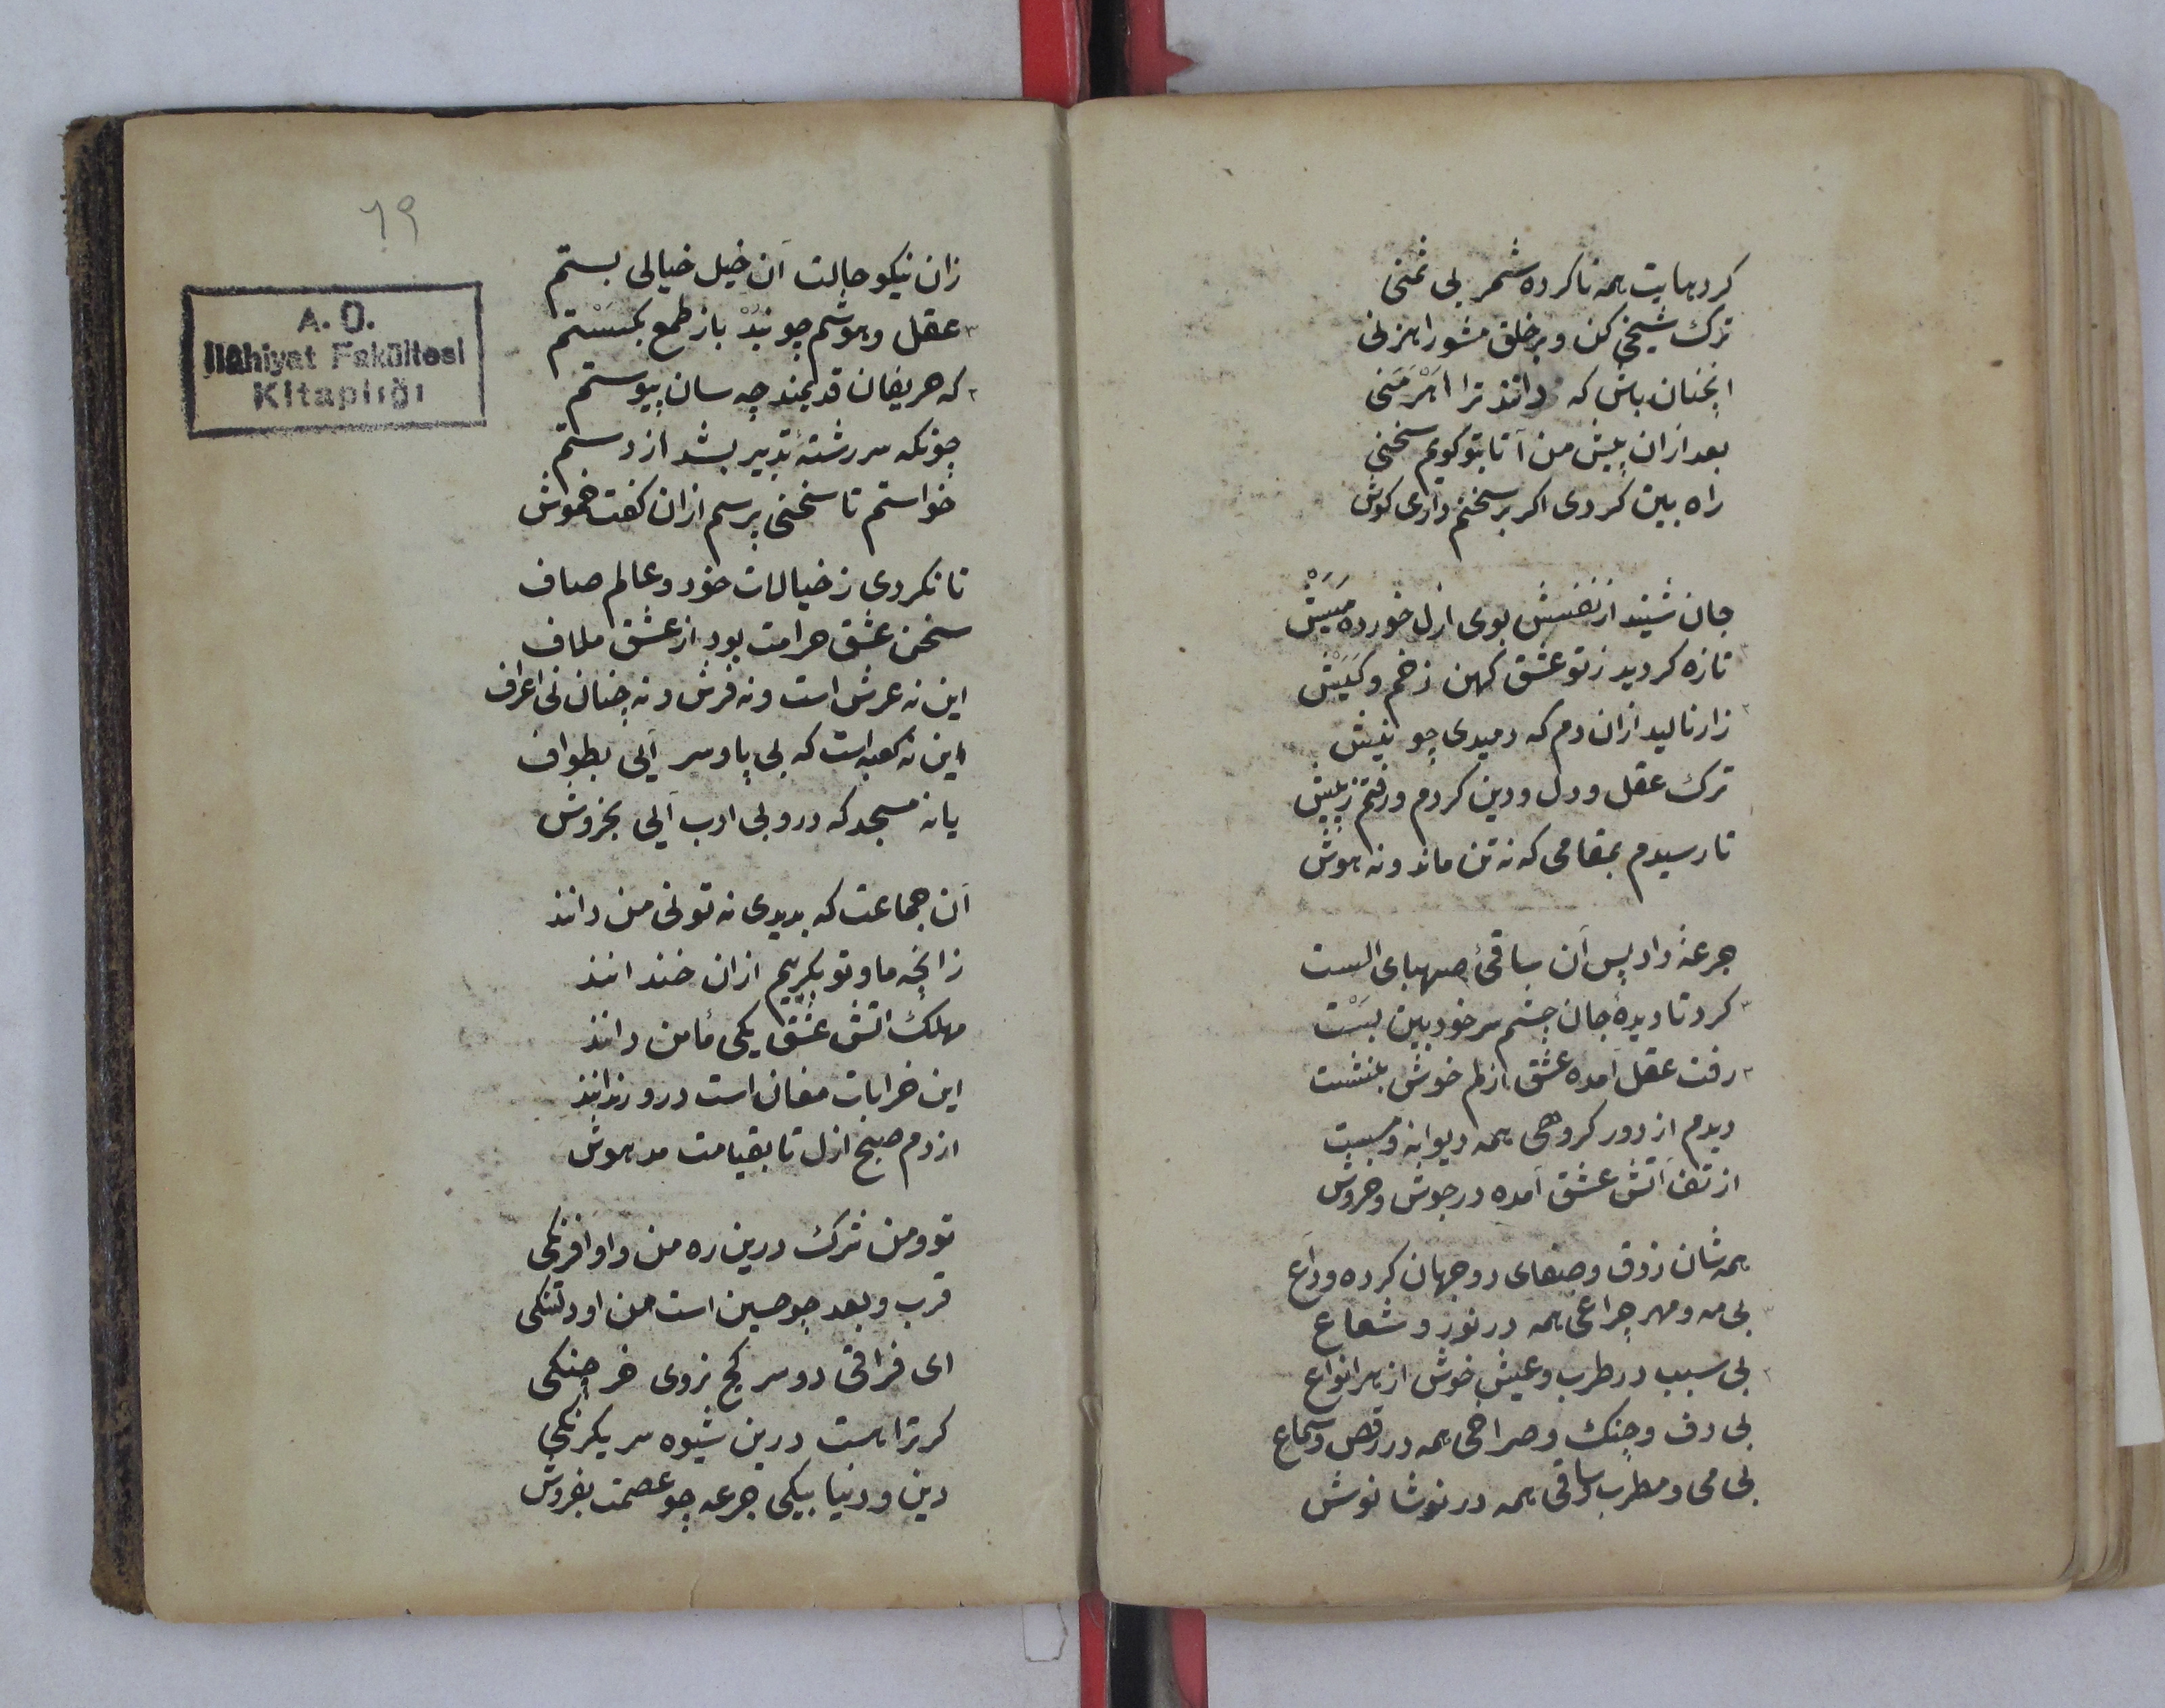 کردهایت همه ناکرده شمر بی ثمنی
ترک شیخی کن و بر خلق مشو راهزنی
انچنان باش که دانند ترا اهرمنی
بعد ازان پیش من آ تا بتو گویم سخنی
راه بین گردی اگر بر سخنم داری گوش
جان شنید از نفسش بوی ازل خورده میش
تازه گردید ز تو عشق کهن زخم و کیش
زار نالید ازان دم که دمیدی چو نیش
ترک عقل و دل و دین کردم و رفتم ز پیش
تا رسیدم بمقامی که نه تن ماند و نه هوش
جرعهٔ داد پس آن ساقئ صهبای الست
کرد تا دیدهٔ جان چشم سر خودبین بست
رفت عقل آمده عشق ازلم خوش بنشست
دیدم از دور گروهی همه دیوانه و مست
از تف آتش عشق آمده در جوش و خروش
همه شان ذوق و صفای دو جهان کرده وداع
بی مه و مهر چراغی همه در نور و شعاع
بی سبب در طرب و عیش خوش از هر انواع
بی دف و چنک و صراحی همه در رقص و سماع
بی می و مطرب و ساقی همه در نوشانوش
٦٩
A. Ü.
İlâhiyat Fakültesi
Kitaplığı
زان نیکو حالت آن خیل خیالی بستم
عقل و هوشم چو نبد باز طمع بگسستم
که حریفان قدیمند چه سان پیوستم
چونکه سر رشتهٔ تدبیر بشد از دستم
خواستم تا سخنی پرسم ازان گفت خموش
تا نکردی ز خیالات خود و عالم صاف
سخن عشق حرامت بود از عشق ملاف
این نه عرش است و نه فرش و نه جنان نی اعراف
این نه کعبه است که بی پا و سر آیی بطواف
یا نه مسجد که درو بی ادب آیی بخروش
آن جماعت که بدیدی نه تو نی من دانند
زانچه ما و تو بگرییم ازان خندانند
مهلک اتش عشق یکی مأمن دانند
این خرابات مغان است درو رندانند
از دم صبح ازل تا بقیامت مدهوش
تو و من ترک درین ره من و او افرنکی
قرب و بعد چو حسین است من او دلتنکی
ای فراقی دو سر کج نروی خرچنکی
کر ترا هست درین شیوه سر یکرنکی
دین و دنیا بیکی جرعه چو عصمت بفروش